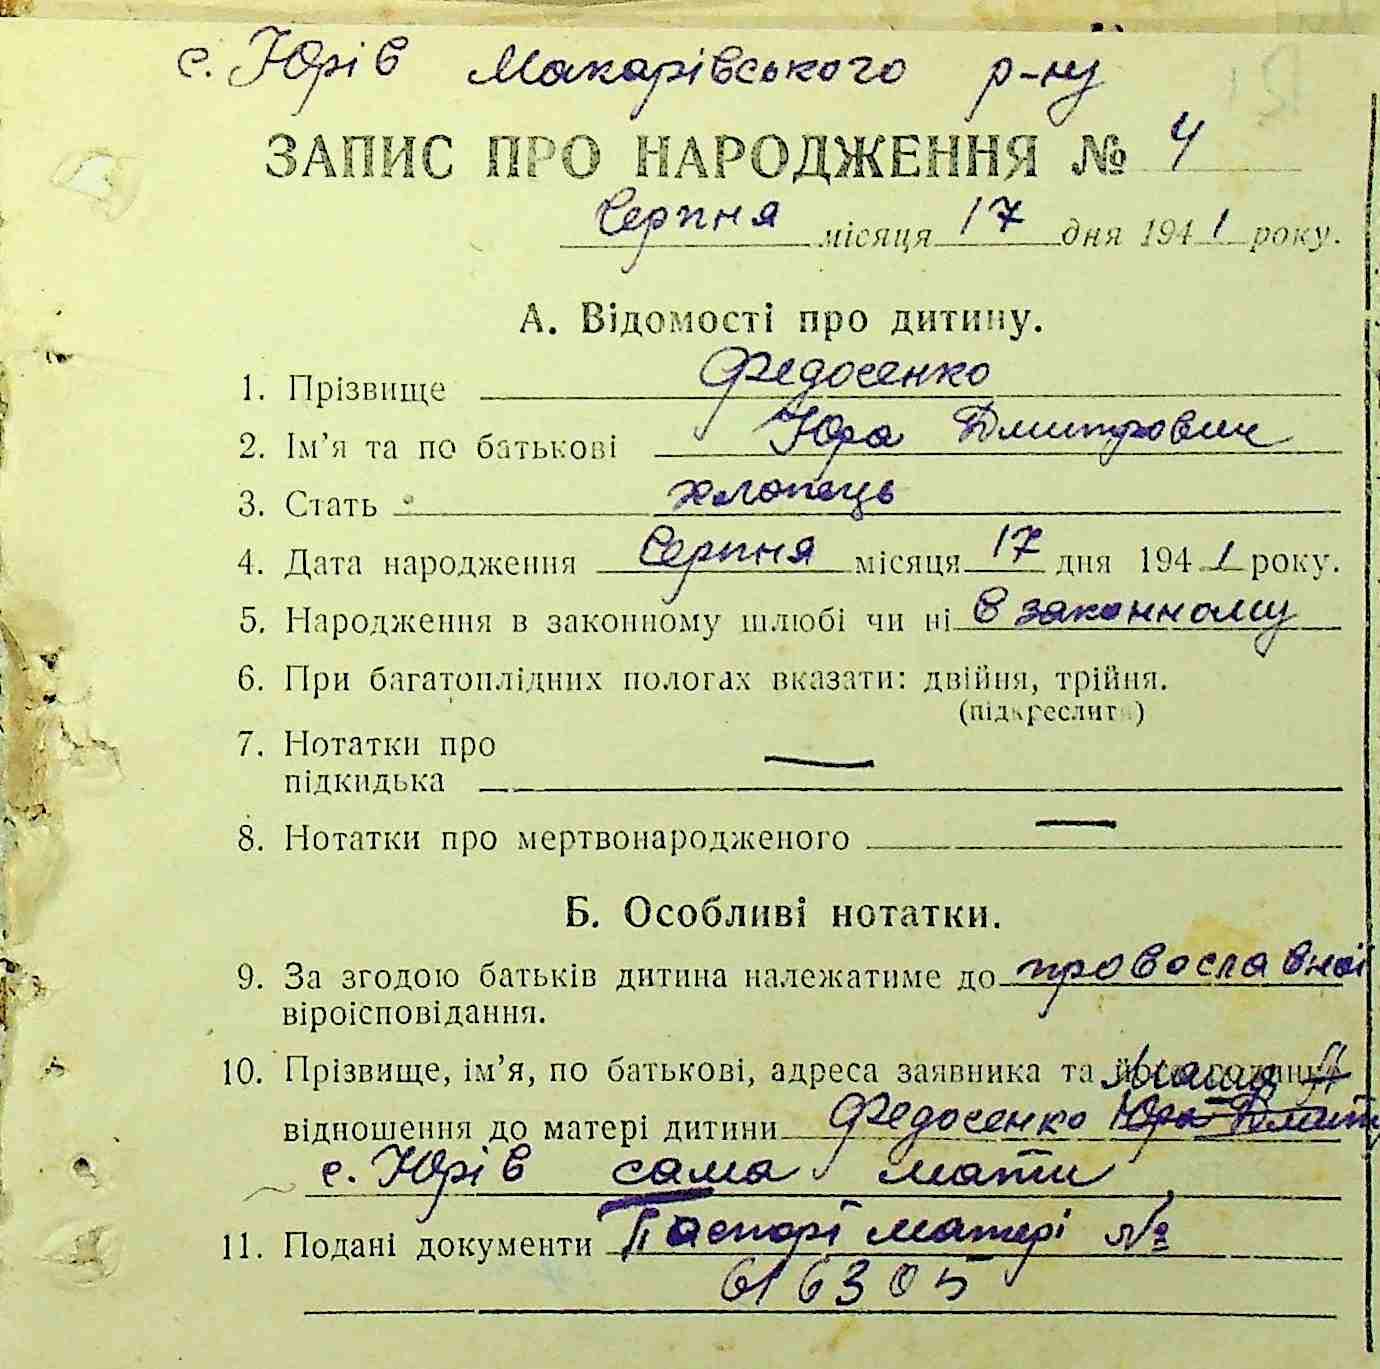 с. Юрів Макарівського р-ну
ЗАПИС ПРО НАРОДЖЕННЯ № 4
Серпня місяця 17 дня 1941 року.
А. Відомості про дитину.
1. Прізвище Федосенко
2. Ім’я та по батькові Юра Дмитрович
3. Стать хлопець
4. Дата народження Серпня місяця 17 дня 1941 року.
5. Народження в законному шлюбі чи ні в законному
6. При багатоплідних пологах вказати: двійня, трійня.
(підкреслити)
7. Нотатки про
підкидька —
8. Нотатки про мертвонародженого —
Б. Особливі нотатки.
9. За згодою батьків дитина належатиме до провославної
віроісповідання.
10. Прізвище, ім’я, по батькові, адреса заявника та його
відношення до матері дитини Федосенко Юра Дмит
с. Юрів сама мати
11. Подані документи Паспорт матері №
616305